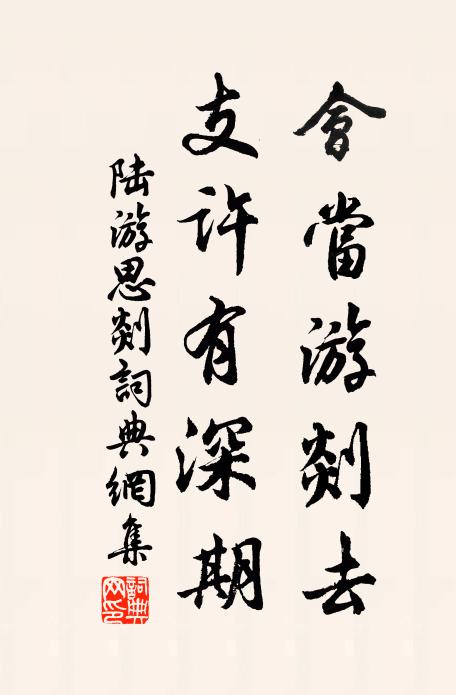 會當游剡去
支許有深期
陆游思剡詞典網集
詞典网印